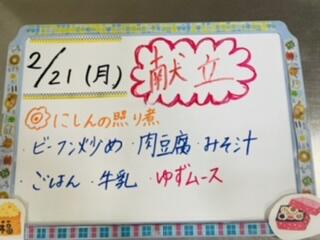 2/21(月) 献立
にしんの照り煮
・ビーフン炒め・肉豆腐・みそ汁
・ごはん・牛乳・ゆずムース